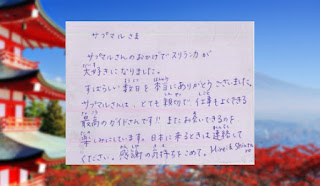 サプマルさま
サプマルさんのおかげでスリランカが
大好きになりました。
すばらしい数日を本当にありがとうございました。
サプマルさんは、とても親切で仕事もよくできる
最高のガイドさんです!! またお会いできるのを
楽しみにしています。日本に来るときは連絡して
ください。感謝の気持ちをこめて。Hiro & Shinta